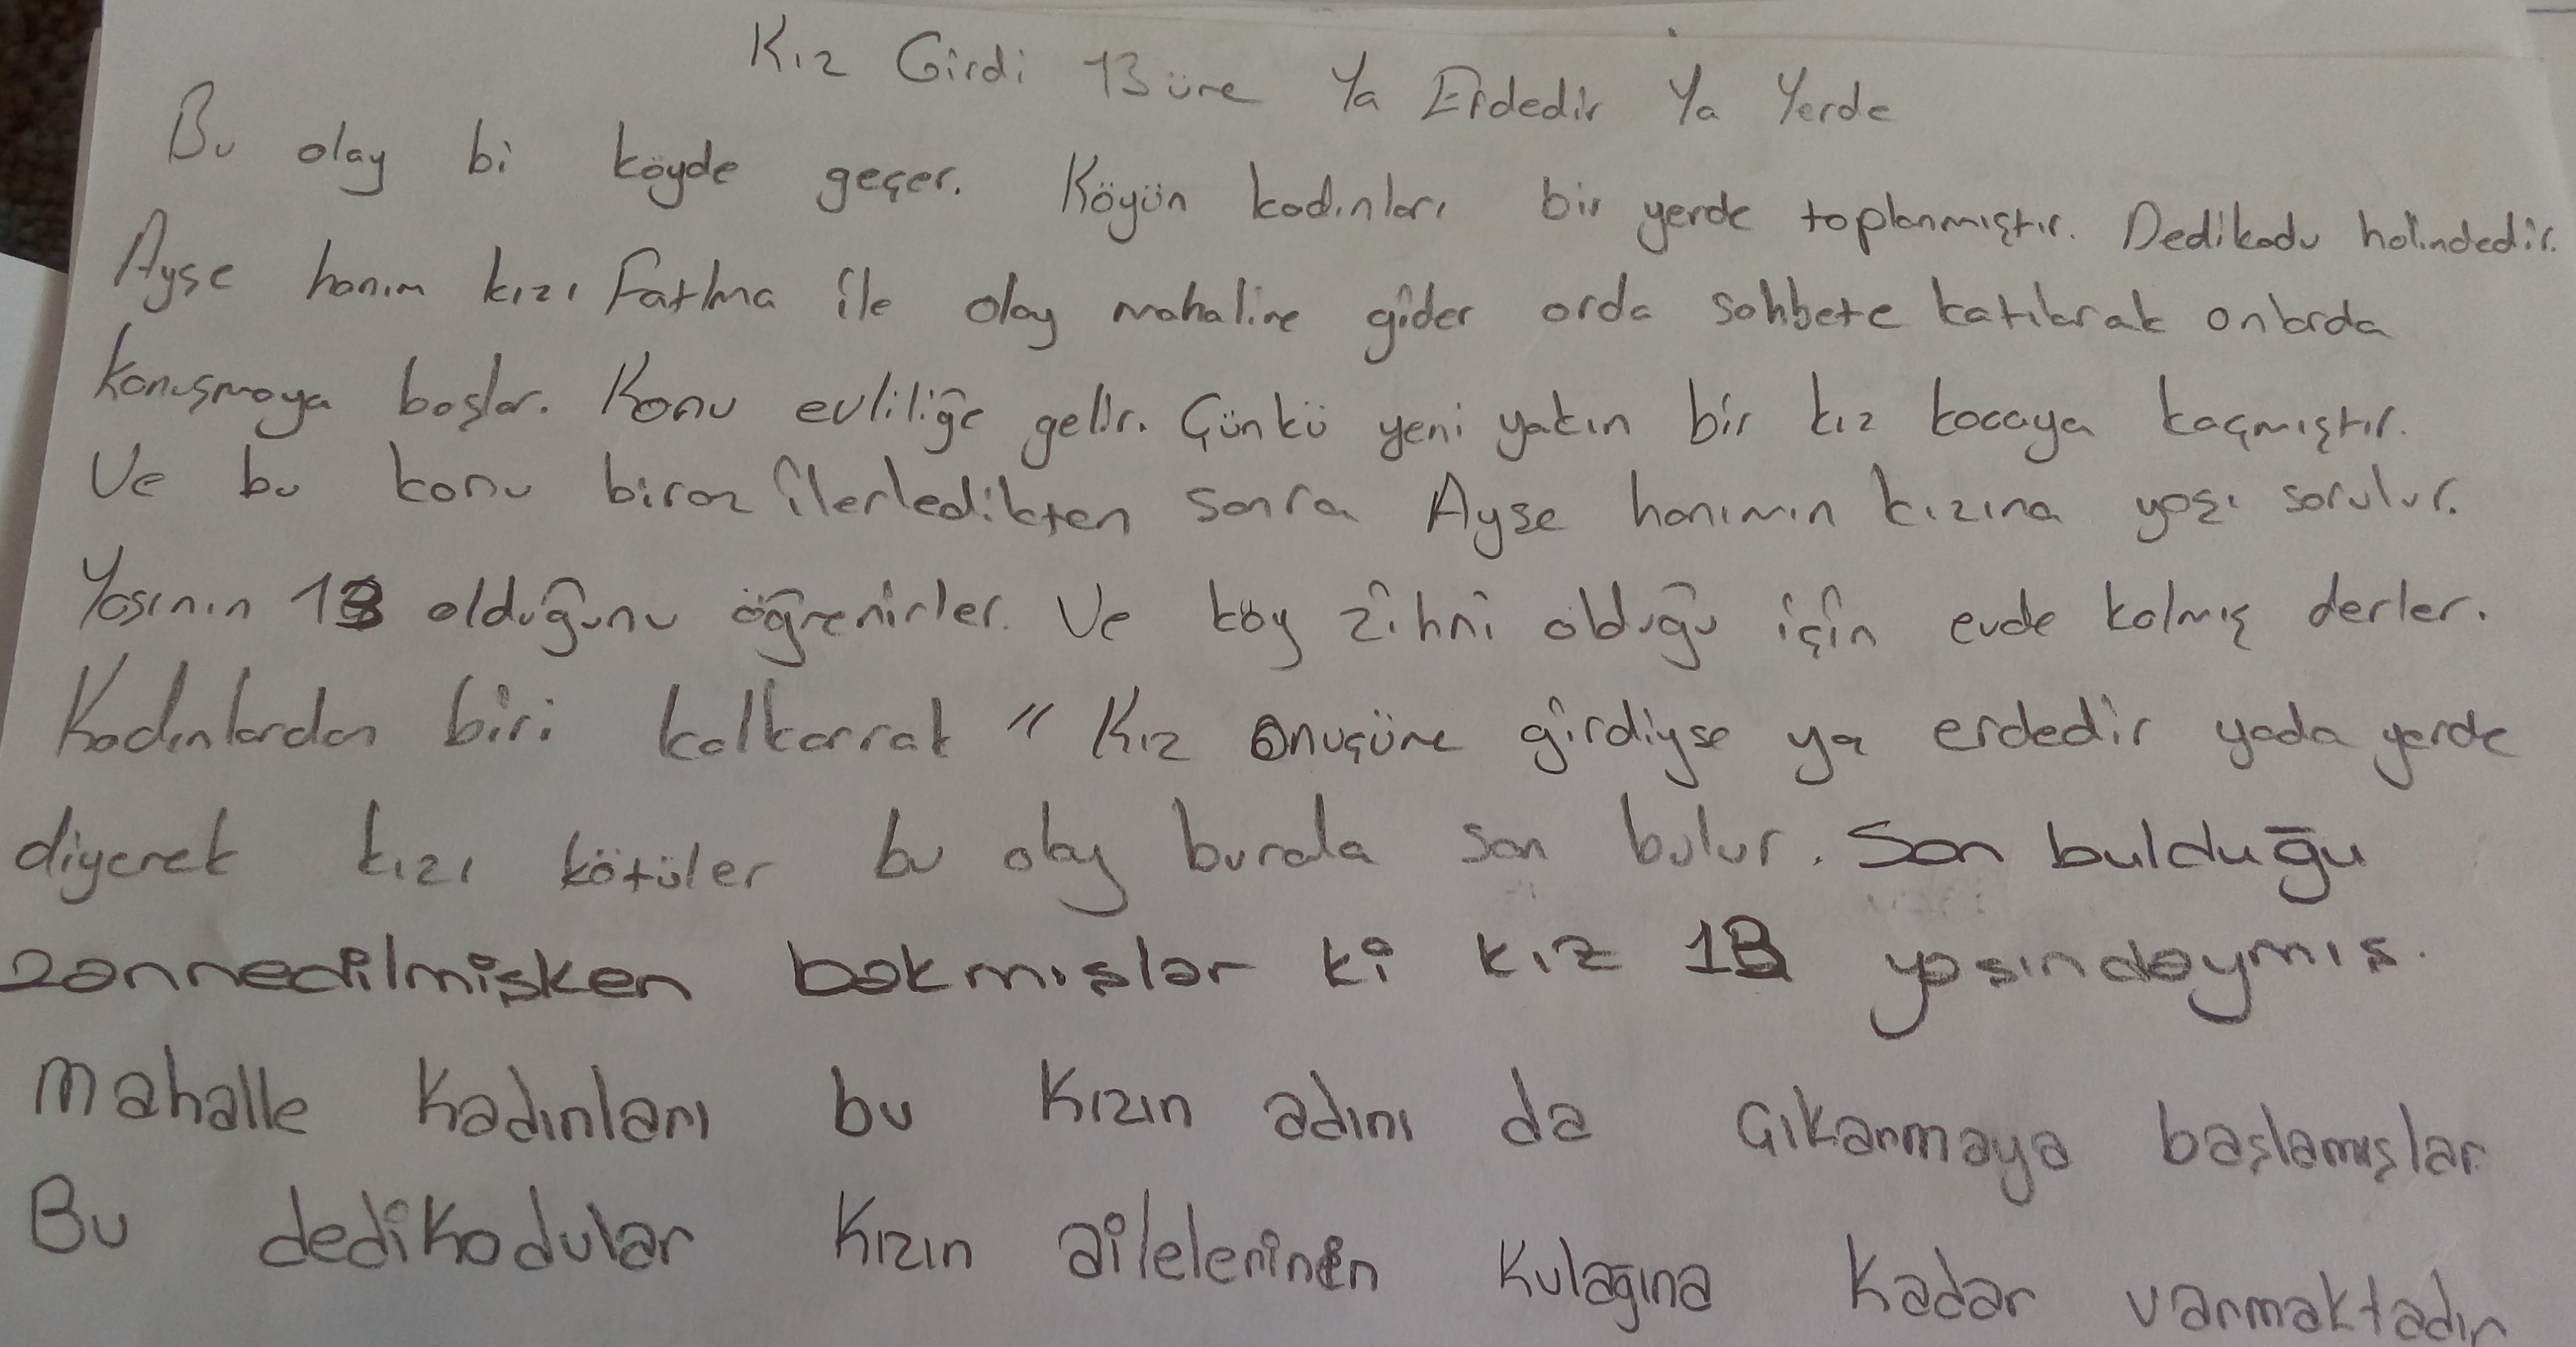 Kız Girdi 13üne Ya Erdedir Ya Yerde
Bu olay bi köyde geçer. Köyün kadınları bir yerde toplanmıştır. Dedikodu halindedir.
Ayşe hanım kızı Fatma ile olay mahaline gider orda sohbete katılarak onlarda
konuşmaya başlar. Konu evliliğe gelir. Çünkü yeni yakın bir kız kocaya kaçmıştır.
Ve bu konu biraz ilerledikten sonra Ayşe hanımın kızına yaşı sorulur.
Yaşının 13 olduğunu öğrenirler. Ve köy zihni olduğu için evde kalmış derler.
Kadınlardan biri kalkarrak " Kız onuçüne girdiyse ya erdedir yada yerde
diyerek kızı kötüler bu olay burada son bulur. Son bulduğu
zannedilmişken bakmışlar ki kız 13 yaşındaymış.
Mahalle Kadınları bu Kızın adını da Çıkarmaya başlamışlar
Bu dedikodular Kızın ailelerinin Kulağına Kadar varmaktadır